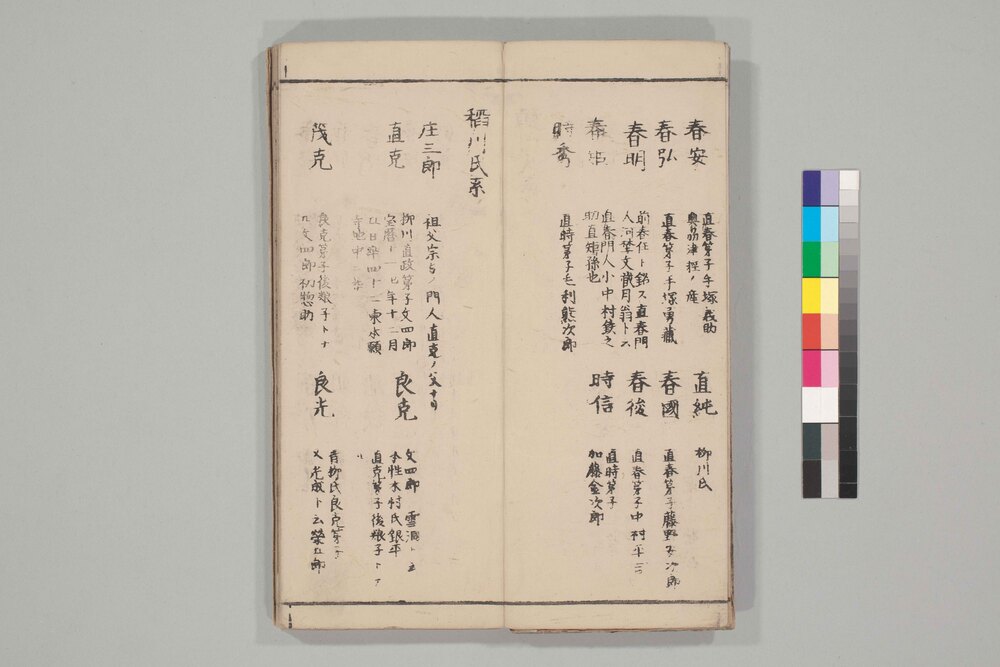 春安
直春芽子手塚義助
奥刕津捏ノ産
春弘
直春芽子手塚勇蔵
春明
前春任ト銘ス直春門
人河埜文
春
直春門人小中村鉄之
助直矩孫也
時秀
直時芽子毛利熊次郎
直純
柳川氏
春國
直春芽子藤野
春後
直春芽子中村平
時信
直時芽子
加藤金次郎
稻川氏系
庄三郎
祖父宗与ノ門人直克ノ父
直克
柳川直政芽子文四郎
宝暦十一七年十二月
日卒四十二東本願
寺地中ニ葬
茂克
良克芽子後粮子トナ
ル文四郎初惣助
良克
文四郎
本性木村氏銀平
直克芽子後粮子トナ
ル
良光
青柳氏良克芽子
又光成ト云榮五郎